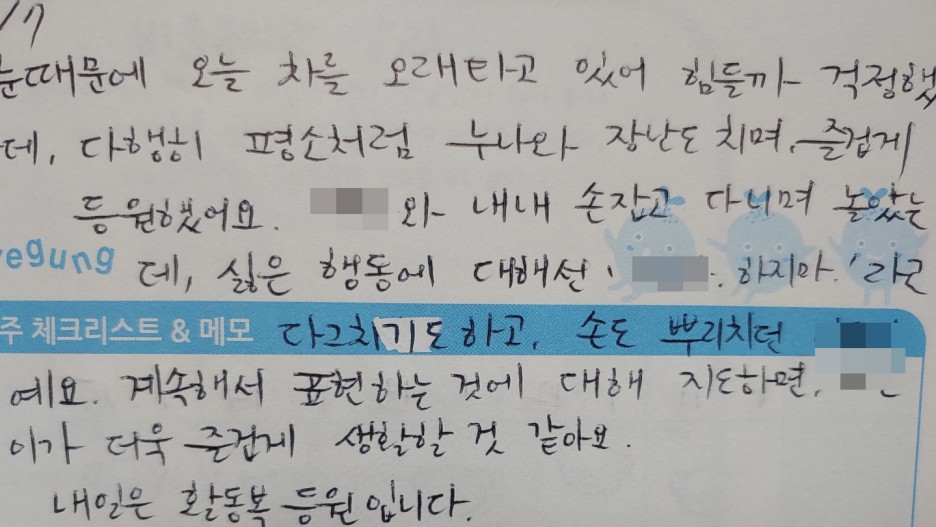 /7
눈때문에 오늘 차를 오래타고 있어 힘들까 걱정했
데, 다행히 평소처럼 누나와 장난도 치며, 즐겁게
등원했어요. 와 내내 손잡고 다니며 놀았는
egung 데, 싫은 행동에 대해선 ' . 하지마.' 라고
주 체크리스트 & 메모 다그치기도하고, 손도 뿌리치던
예요. 계속해서 표현하는 것에 대해 지도하면,
이가 더욱 즐겁게 생활할 것 같아요.
내일은 활동복 등원입니다.